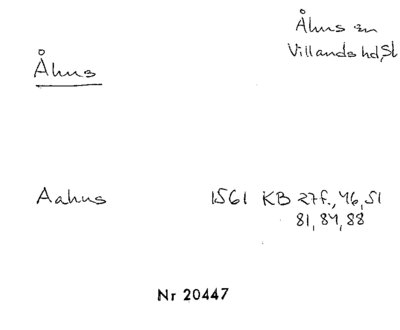 Åhus sn
Villands hd, Sk
Åhus
Aahus 1561 KB 27f., 46, 51
81, 84, 88
Nr 20447